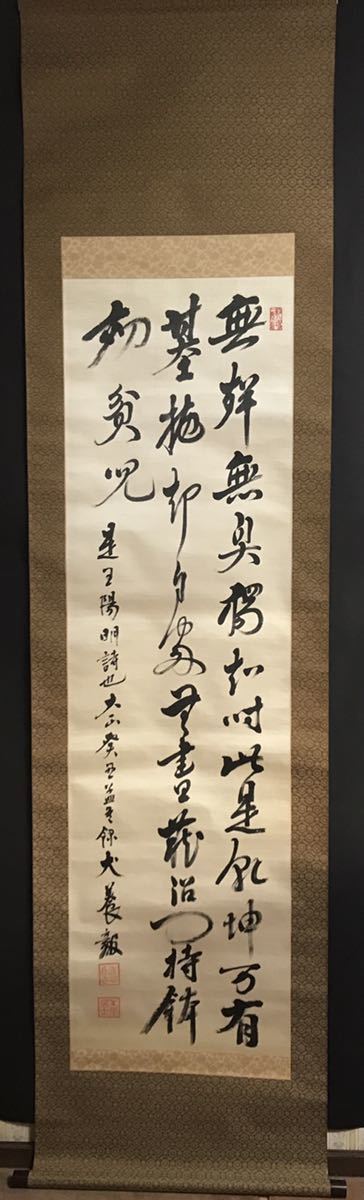 無聲無臭獨知時此是乾坤万有
基抛却自家無盡蔵沿門持鉢
効貧児
是王陽明詩也大正癸丑錄犬養毅